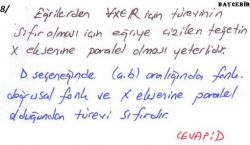 BAYCEBİR
8/ Eğrilerden ∀x∈R için türevinin
sıfır olması için eğriye çizilen teğetin
X eksenine paralel olması yeterlidir.
D seçeneğinde (a,b) aralığında fonk.
doğrusal fonk ve X eksenine paralel
olduğundan türevi sıfırdır.
CEVAP:D